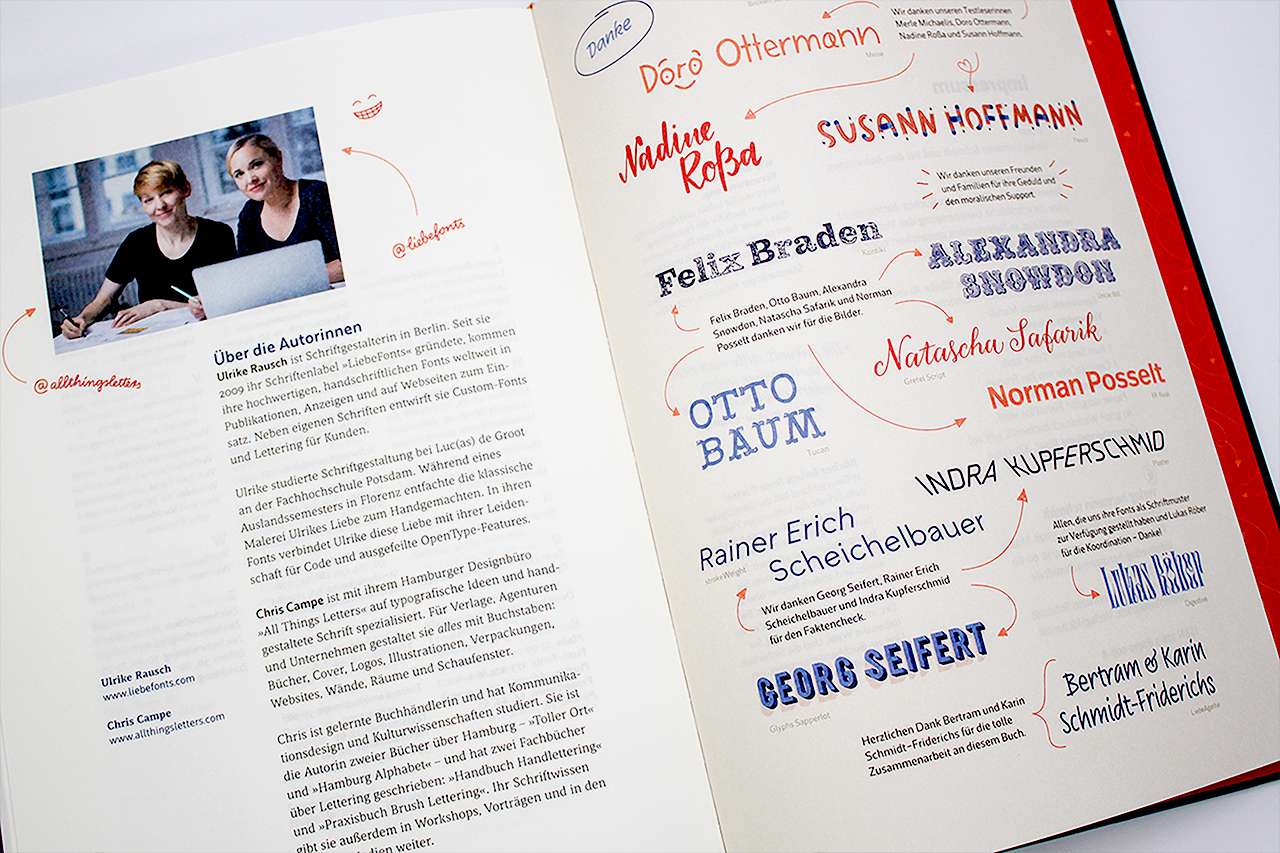 @liebefonts
@allthingsletters
Über die Autorinnen
Ulrike Rausch ist Schriftgestalterin in Berlin. Seit sie
2009 ihr Schriftenlabel »LiebeFonts« gründete, kommen
ihre hochwertigen, handschriftlichen Fonts weltweit in
Publikationen, Anzeigen und auf Webseiten zum Ein-
satz. Neben eigenen Schriften entwirft sie Custom-Fonts
und Lettering für Kunden.
Ulrike studierte Schriftgestaltung bei Luc(as) de Groot
an der Fachhochschule Potsdam. Während eines
Auslandssemesters in Florenz entfachte die klassische
Malerei Ulrikes Liebe zum Handgemachten. In ihren
Fonts verbindet Ulrike diese Liebe mit ihrer Leiden-
schaft für Code und ausgefeilte OpenType-Features.
Chris Campe ist mit ihrem Hamburger Designbüro
»All Things Letters« auf typografische Ideen und hand-
gestaltete Schrift spezialisiert. Für Verlage, Agenturen
und Unternehmen gestaltet sie alles mit Buchstaben:
Bücher, Cover, Logos, Illustrationen, Verpackungen,
Websites, Wände, Räume und Schaufenster.
Ulrike Rausch
www.liebefonts.com
Chris Campe
www.allthingsletters.com
Chris ist gelernte Buchhändlerin und hat Kommunika-
tionsdesign und Kulturwissenschaften studiert. Sie ist
die Autorin zweier Bücher über Hamburg – »Toller Ort«
und »Hamburg Alphabet« – und hat zwei Fachbücher
über Lettering geschrieben: »Handbuch Handlettering«
und »Praxisbuch Brush Lettering«. Ihr Schriftwissen
gibt sie außerdem in Workshops, Vorträgen und in den
weiter.
Danke
Doro Ottermann
Wir danken unseren Testleserinnen
Merle Michaelis, Doro Ottermann,
Nadine Roßa und Susann Hoffmann.
Nadine
Roßa
SUSANN HOFFMANN
Wir danken unseren Freunden
und Familien für ihre Geduld und
den moralischen Support.
Felix Braden
ALEXANDRA
SNOWDON
Felix Braden, Otto Baum, Alexandra
Snowdon, Natascha Safarik und Norman
Posselt danken wir für die Bilder.
Natascha Safarik
Gretel Script
OTTO
BAUM
Tucan
Norman Posselt
INDRA KUPFERSCHMID
Rainer Erich
Scheichelbauer
strokeWeight
Allen, die uns ihre Fonts als Schriftmuster
zur Verfügung gestellt haben und Lukas Röber
für die Koordination – Danke!
Lukas Röber
Digestive
Wir danken Georg Seifert, Rainer Erich
Scheichelbauer und Indra Kupferschmid
für den Faktencheck.
GEORG SEIFERT
Glyphs Sapperlot
Bertram & Karin
Schmidt-Friderichs
LiebeAgette
Herzlichen Dank Bertram und Karin
Schmidt-Friderichs für die tolle
Zusammenarbeit an diesem Buch.